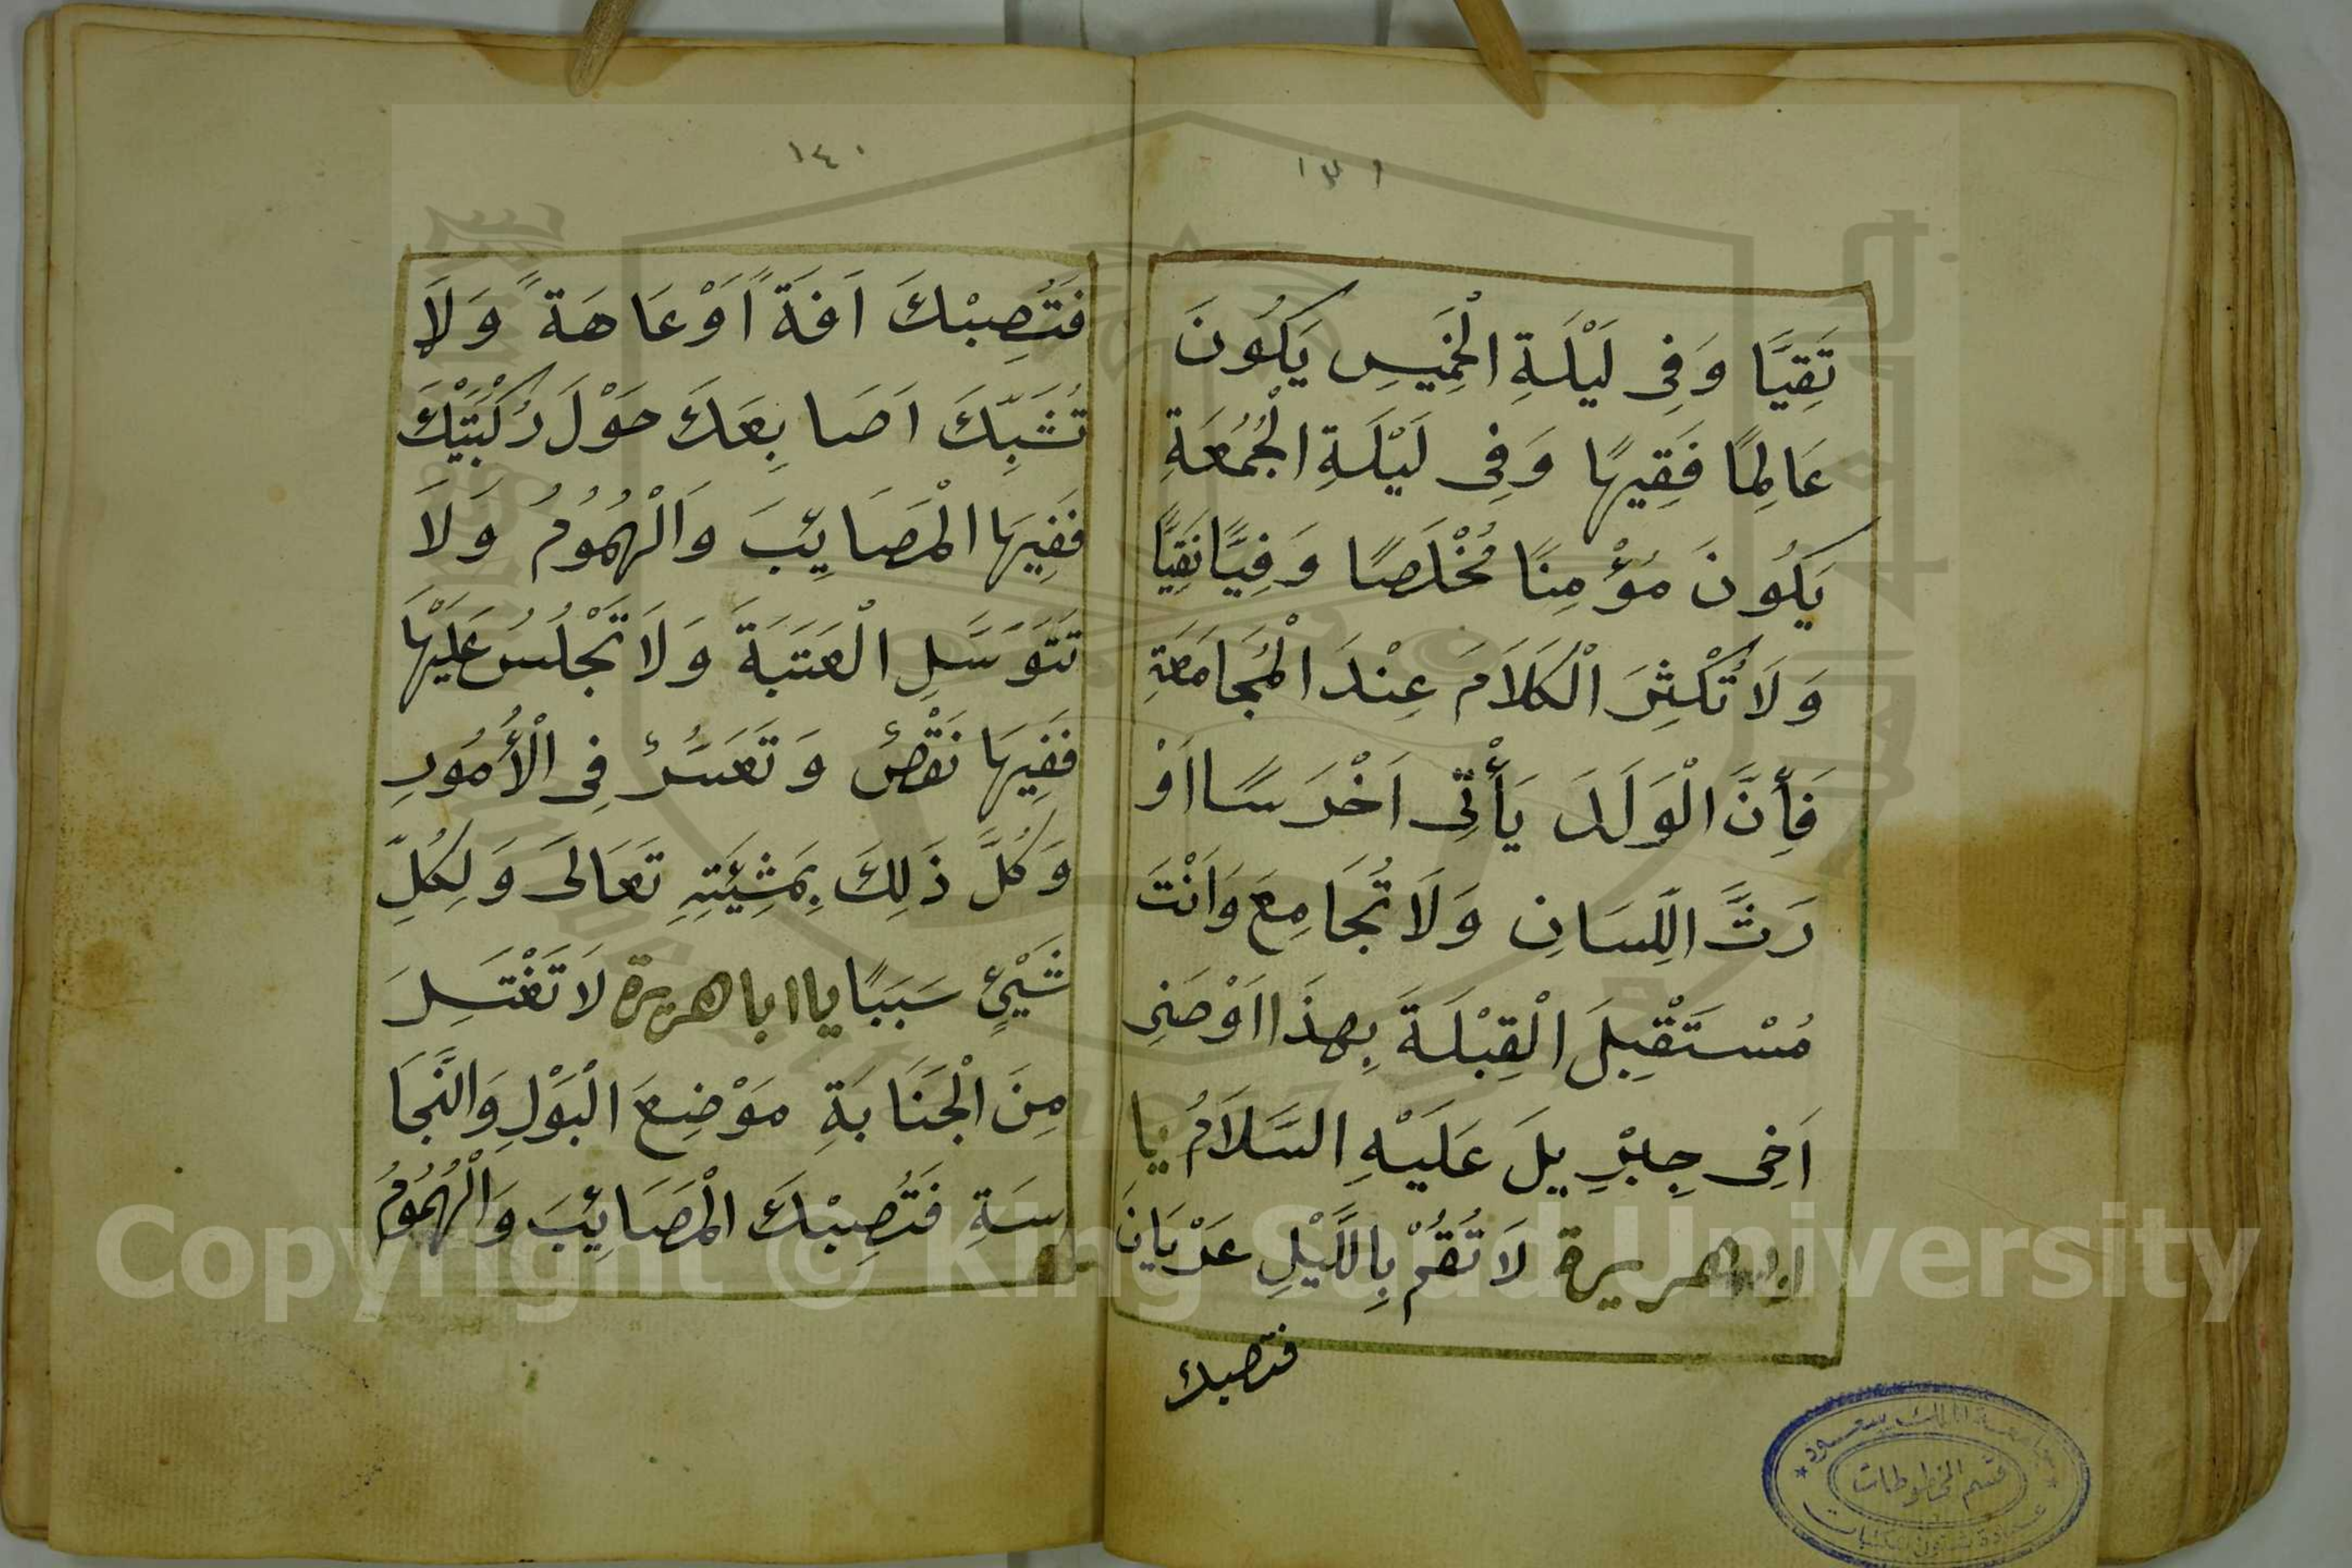 ١٣٩
تَقِيًّا وَفِى لَيْلَةِ الْخَمِيسِ يَكُونَ
عَالِمًا فَقِيهًا وَفِى لَيْلَةِ الْجُمُعَةِ
يَكُونَ مُؤْمِنًا مُخْلَصًا وَفِيًّا نَقِيًّا
وَلَا تُكْثِرَ الْكَلَامَ عِنْدَ الْمُجَامَعَةِ
فَأِنَّ الْوَلَدَ يَأْتِى اَخْرَسًا اَوْ
رَثَّ اللِّسَانِ وَلَا تُجَامِعَ وَاَنْتَ
مُسْتَقْبِلَ الْقِبْلَةَ بِهذَا اَوْصَنِى
اَخِى جِبْرِيلَ عَلَيْهِ السَّلَامُ يَا
هريرة لَا تَقُمْ بِاللَّيْلِ عَرْيَانَ
فتصبك
١٤٠
فَتُصِبْكَ اَفَةً اَوْ عَاهَةً وَلَا
تُشَبِّكَ اَصَابِعَكَ حَوْلَ رُكْبَتَيْكَ
فَفِيهَا الْمَصَائِبَ وَالْهُمُومُ وَلَا
تَتَوَسَّلِ الْعَتَبَةَ وَلَا تَجْلُسُ عَلَيْهَا
فَفِيهَا نَقْصٌ وَتَعَسُّرٌ فِى الْأُمُورِ
وَكُلَّ ذَلِكَ بِمَشِئَتِهِ تَعَالَى وَلِكُلِّ
شَيْئٍ سَبَبًا يا ابا هريرة لَا تَغْتَسِلَ
مِنَ الْجَنَابَةِ مَوْضِعَ الْبَوْلِ وَالنَّجَا
سَةِ فَتُصِبْكَ الْمَصَائِبَ وَالْهُمُومُ
Copyright © King Saud University
جامعة الملك سعود
قسم المخطوطات
عمادة شئون المكتبات